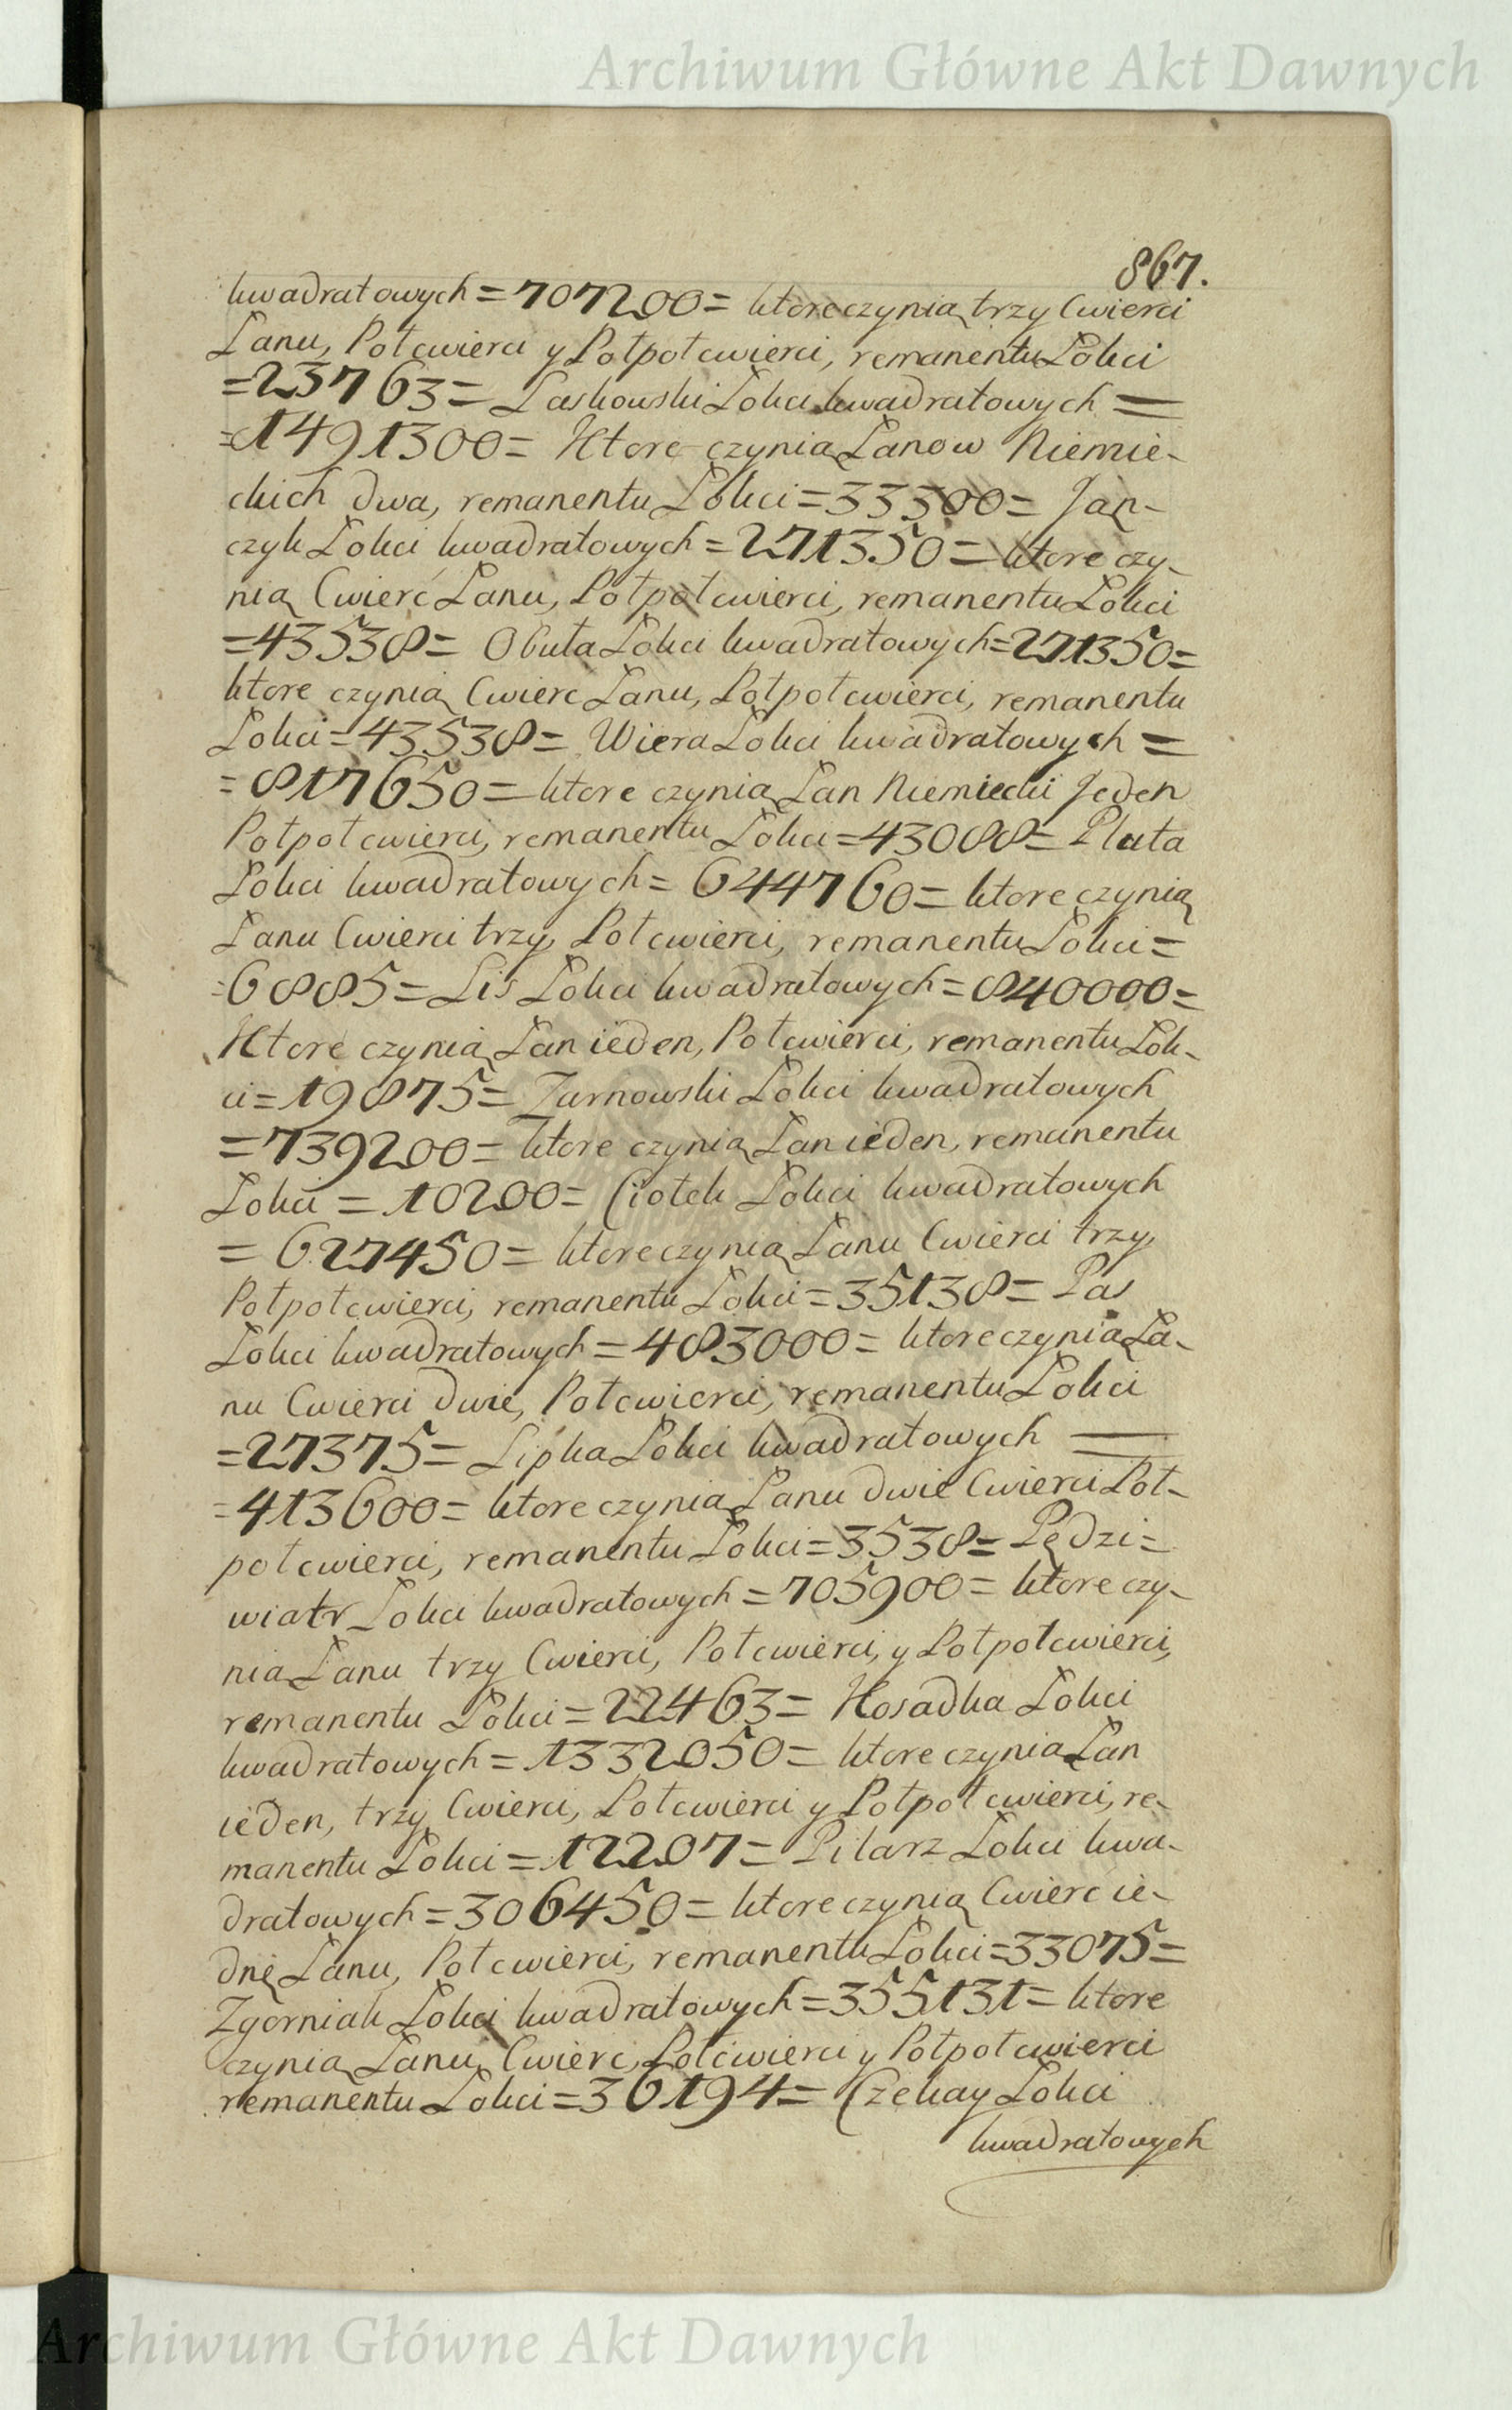 Archiwum Główne Akt Dawnych
867.
kwadratowych = 707200 = ktore czynią trzy Cwierci
Łanu, Połcwierci y Połpołcwierci, remanentu Łokci
= 23763 = Laskowski Łokci kwadratowych =
= 1491300 = Ktore czynią Łanow Niemie-
ckich dwa, remanentu Łokci = 33300 = Jan-
czyk Łokci kwadratowych = 271350 = ktore czy-
nią Cwierć Łanu, Połpołcwierci, remanentu Łokci
= 43538 = Obuła Łokci kwadratowych = 271350 =
ktore czynią Cwierc Łanu, Połpołcwierci, remanentu
Łokci = 43538 = Wiera Łokci kwadratowych =
= 817650 = ktore czynią Łan Niemiecki Jeden
Połpołcwierci, remanentu Łokci = 43088 = Pluta
Łokci kwadratowych = 644760 = ktore czynią
Łanu Cwierci trzy, Połcwierci, remanentu Łokci =
= 6885 = Lis Łokci kwadratowych = 840000 =
Ktore czynią Łan ieden, Połcwierci, remanentu Łok-
ci = 19875 = Zarnowski Łokci kwadratowych
= 739200 = ktore czynią Łan ieden, remanentu
Łokci = 10200 = Ciołek Łokci kwadratowych
= 627450 = ktore czynią Łanu Cwierci trzy,
Połpołcwierci, remanentu Łokci = 35138 = Pas
Łokci kwadratowych = 483000 = ktore czynią Ła-
nu Cwierci dwie, Połcwierci, remanentu Łokci
= 27375 = Lipka Łokci kwadratowych =
= 413600 = ktore czynią Łanu dwie Cwierci Poł-
połcwierci, remanentu Łokci = 3538 = Pędzi =
wiatr Łokci kwadratowych = 705900 = ktore czy-
nią Łanu trzy Cwierci, Połcwierci, y Połpołcwierci,
remanentu Łokci = 22463 = Kosadka Łokci
kwadratowych = 1332050 = ktore czynią Łan
ieden, trzy Cwierci, Połcwierci y Połpołcwierci, re-
manentu Łokci = 12207 = Pilarz Łokci kwa-
dratowych = 306450 = ktore czynią Cwierc ie-
dnę Łanu, Połcwierci, remanentu Łokci = 33075 =
Zgorniak Łokci kwadratowych = 355131 = ktore
czynią Łanu Cwierc, Połcwierci y Połpołcwierci
remanentu Łokci = 36194 = Czekay Łokci
kwadratowych
Archiwum Główne Akt Dawnych